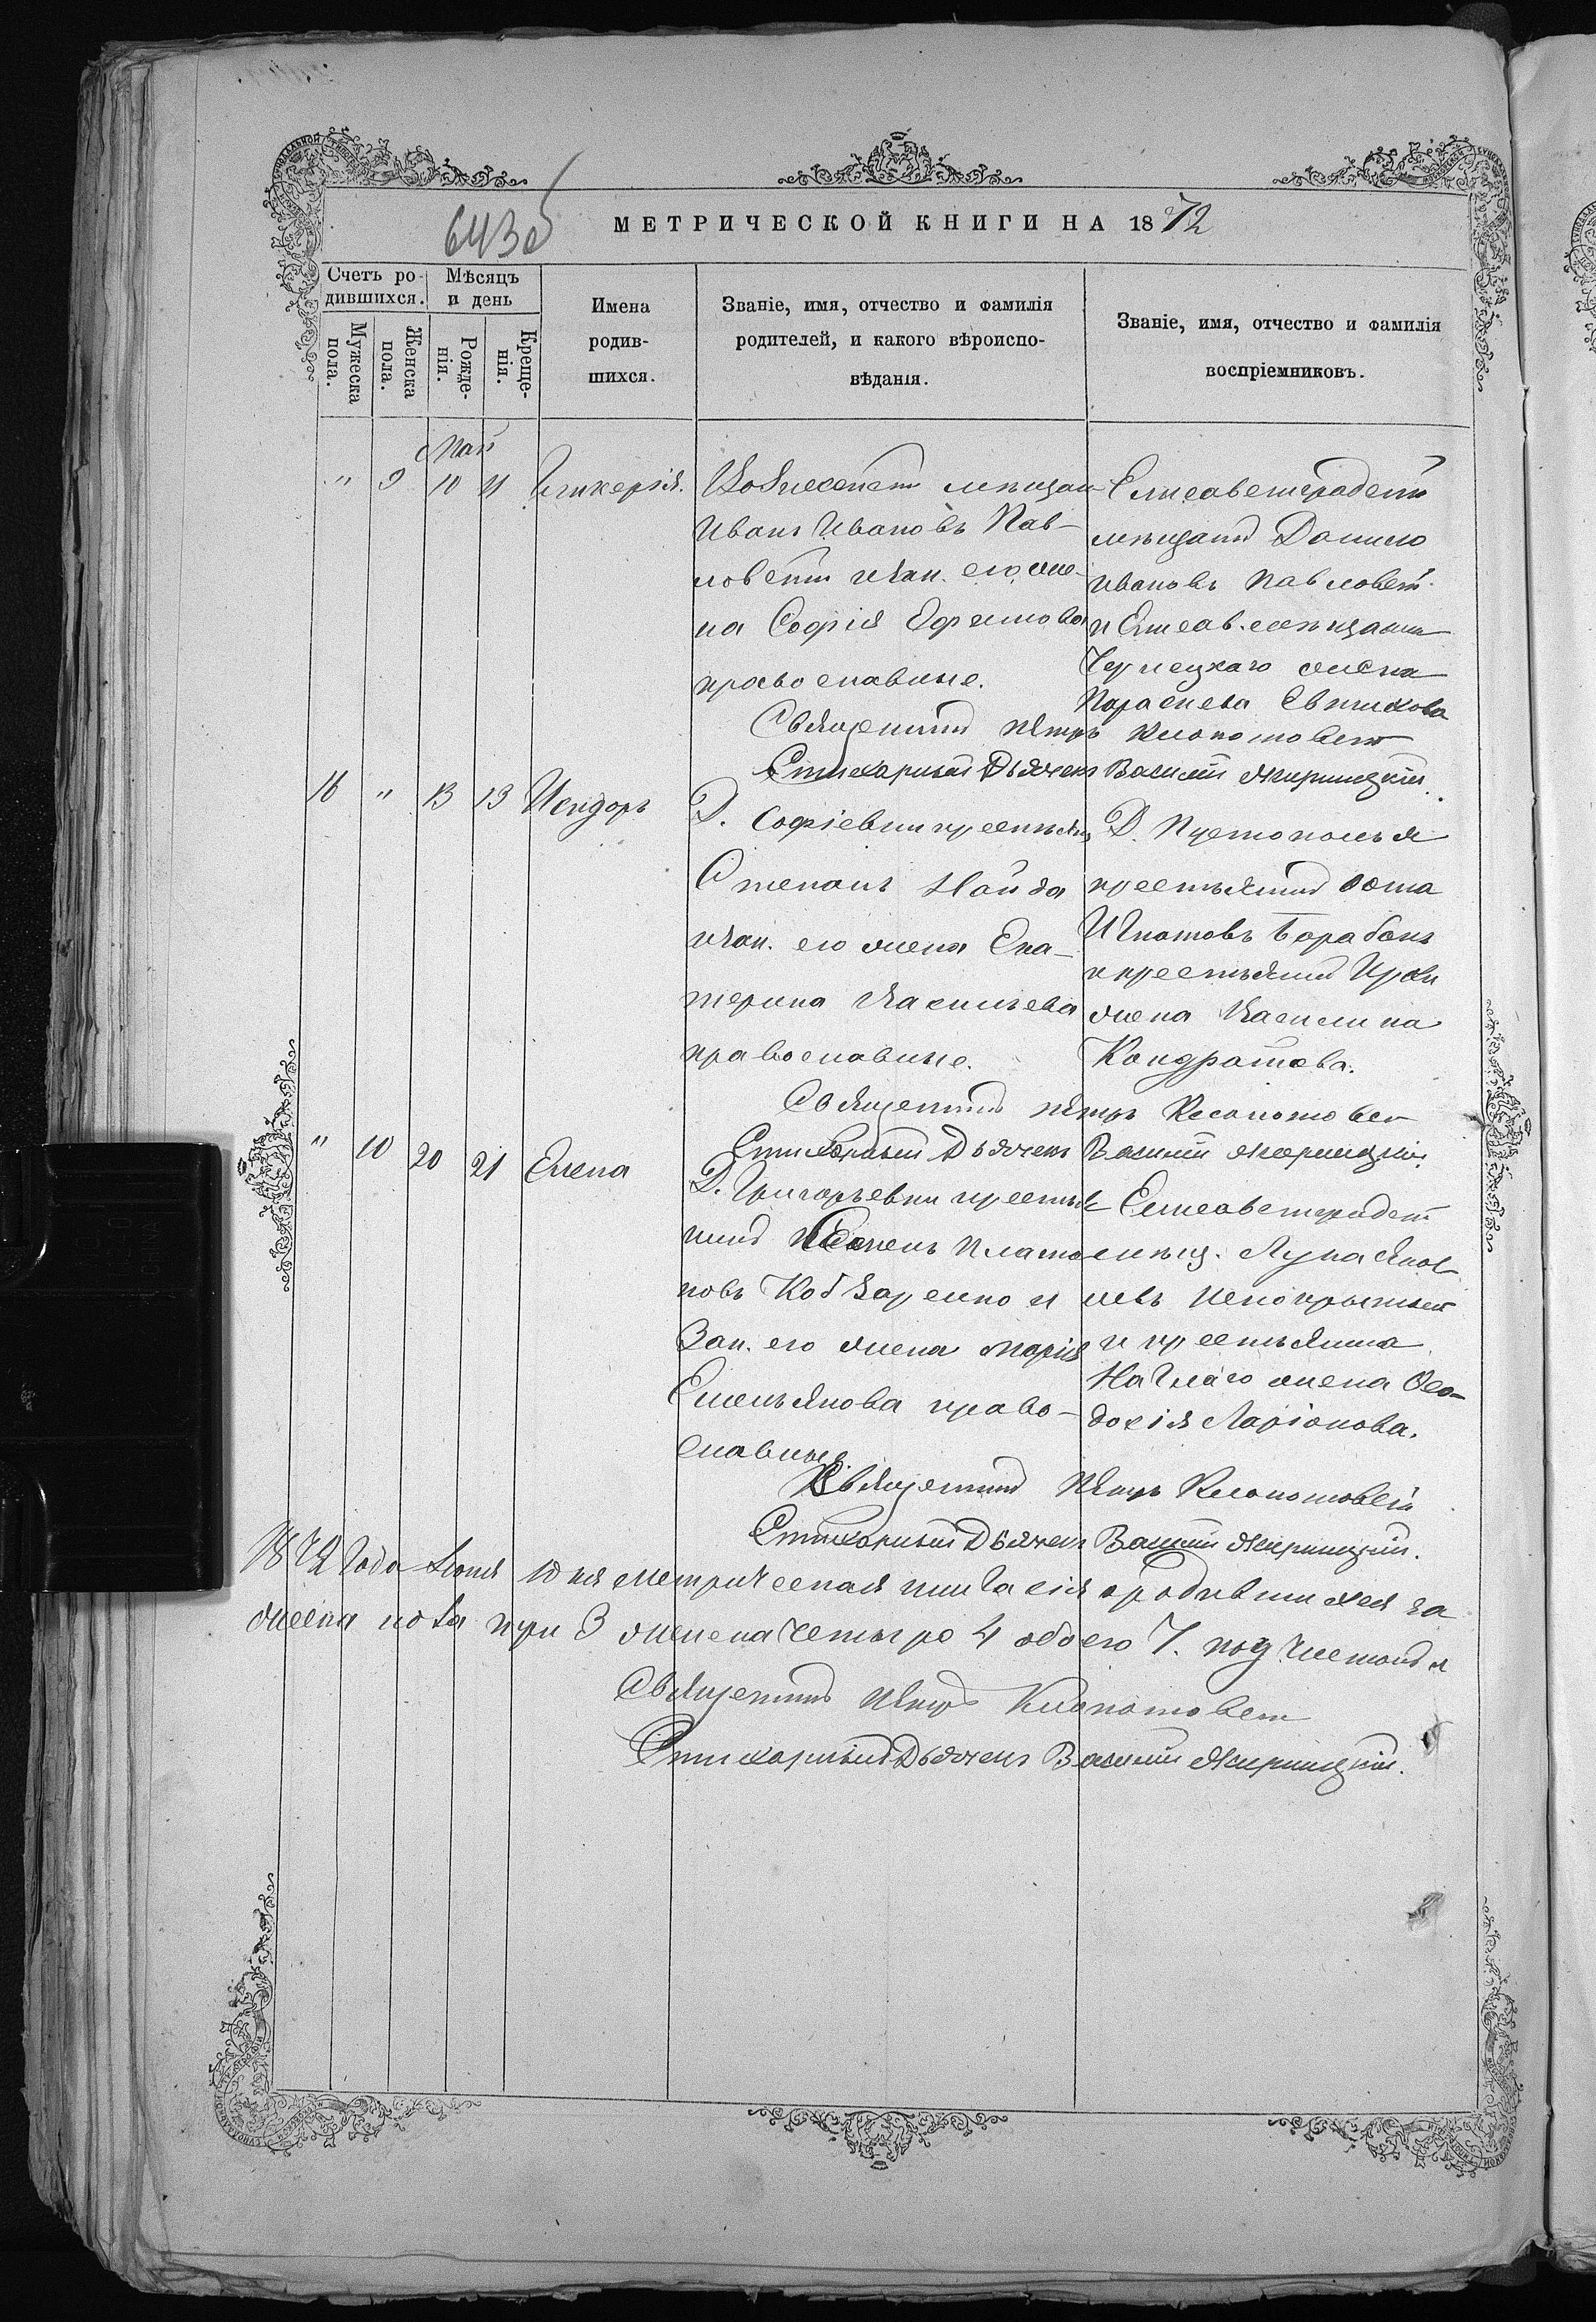 643об
МЕТРИЧЕСКОЙ КНИГИ НА 1872
Счетъ ро-
дившихся.
Мужеска
пола.
Женска
пола.
Мѣсяцъ
и день
Рожде-
нія.
Креще-
нія.
Имена
родив-
шихся.
Званіе, имя, отчество и фамилія
родителей, и какого вѣроиспо-
вѣданія.
Званіе, имя, отчество и фамилія
воспріемниковъ.
Май
" 9 10 11 Гликерія.
мѣщан
Иванъ Ивановъ Пав-
ловскій и зак. его же-
на Софія Ефимова
православные.
Елисаветградскій
мѣщанинъ Данило
Ивановъ Павловскій
и Елисав. мѣщанина
жена
Параскева
Священникъ Петръ Клопотовскій
Стихарный Дьячекъ Василій Жирицкій.
16 " 13 13 Исидоръ
Д. Софіевки крестьянинъ
Степанъ Найда
и зак. его жена Ека-
терина Васильева
православные.
Д.
крестьянинъ Фома
Игнатовъ Барабанъ
и крестьянина
жена Василина
Кондратова.
Священникъ Петръ Клопотовскій
Стихарный Дьячекъ Василій Жирицкій.
" 10 20 21 Елена
Д. Григорьевки крестья
нинъ Семенъ Плато
новъ Кобзаренко и
Зак. его жена Марія
Емельянова право-
славные.
Елисаветградскій
мѣщ. Лука Яков
левъ
и крестьянина
жена Ѳео-
досія Ларіонова.
Священникъ Петръ Клопотовскій
Стихарный Дьячекъ Василій Жирицкій.
1872 Года Іюня 10 дня метрическая книга сія о родившихся за
муска пола три 3 женска четыре 4 обоего 7.
Священникъ Петръ Клопотовскій
Стихарный Дьячекъ Василій Жирицкій.